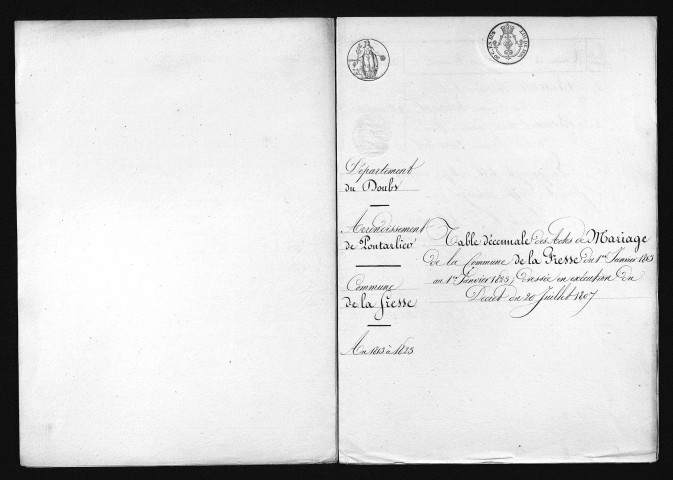 Département
du Doubs
Arrondissement
de Pontarlier
Commune
de la Gresse
An 1813 à 1823
Table décennale des Actes de Mariage
de la Commune de la Gresse du 1er Janvier 1813
au 1er Janvier 1823, dressée en exécution du
Décret du 20 Juillet 1807